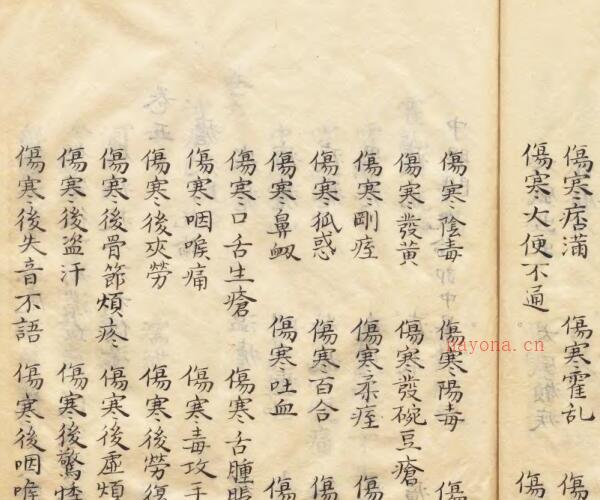 傷寒痞滿　傷寒霍乱　傷
傷寒大便不通　傷
傷寒陰毒　傷寒陽毒　傷
傷寒發黃　傷寒發碗豆瘡
傷寒剛痓　傷寒柔痓　傷
傷寒狐惑　傷寒百合　傷
傷寒鼻衂　傷寒吐血　傷
傷寒口舌生瘡　傷寒舌腫脹
傷寒咽喉痛　傷寒毒攻手
傷寒後夾勞　傷寒後勞復
傷寒後骨節煩疼　傷寒後虛煩
傷寒後盗汗　傷寒後驚悸
傷寒後失音不語　傷寒後咽喉
nayona.cn